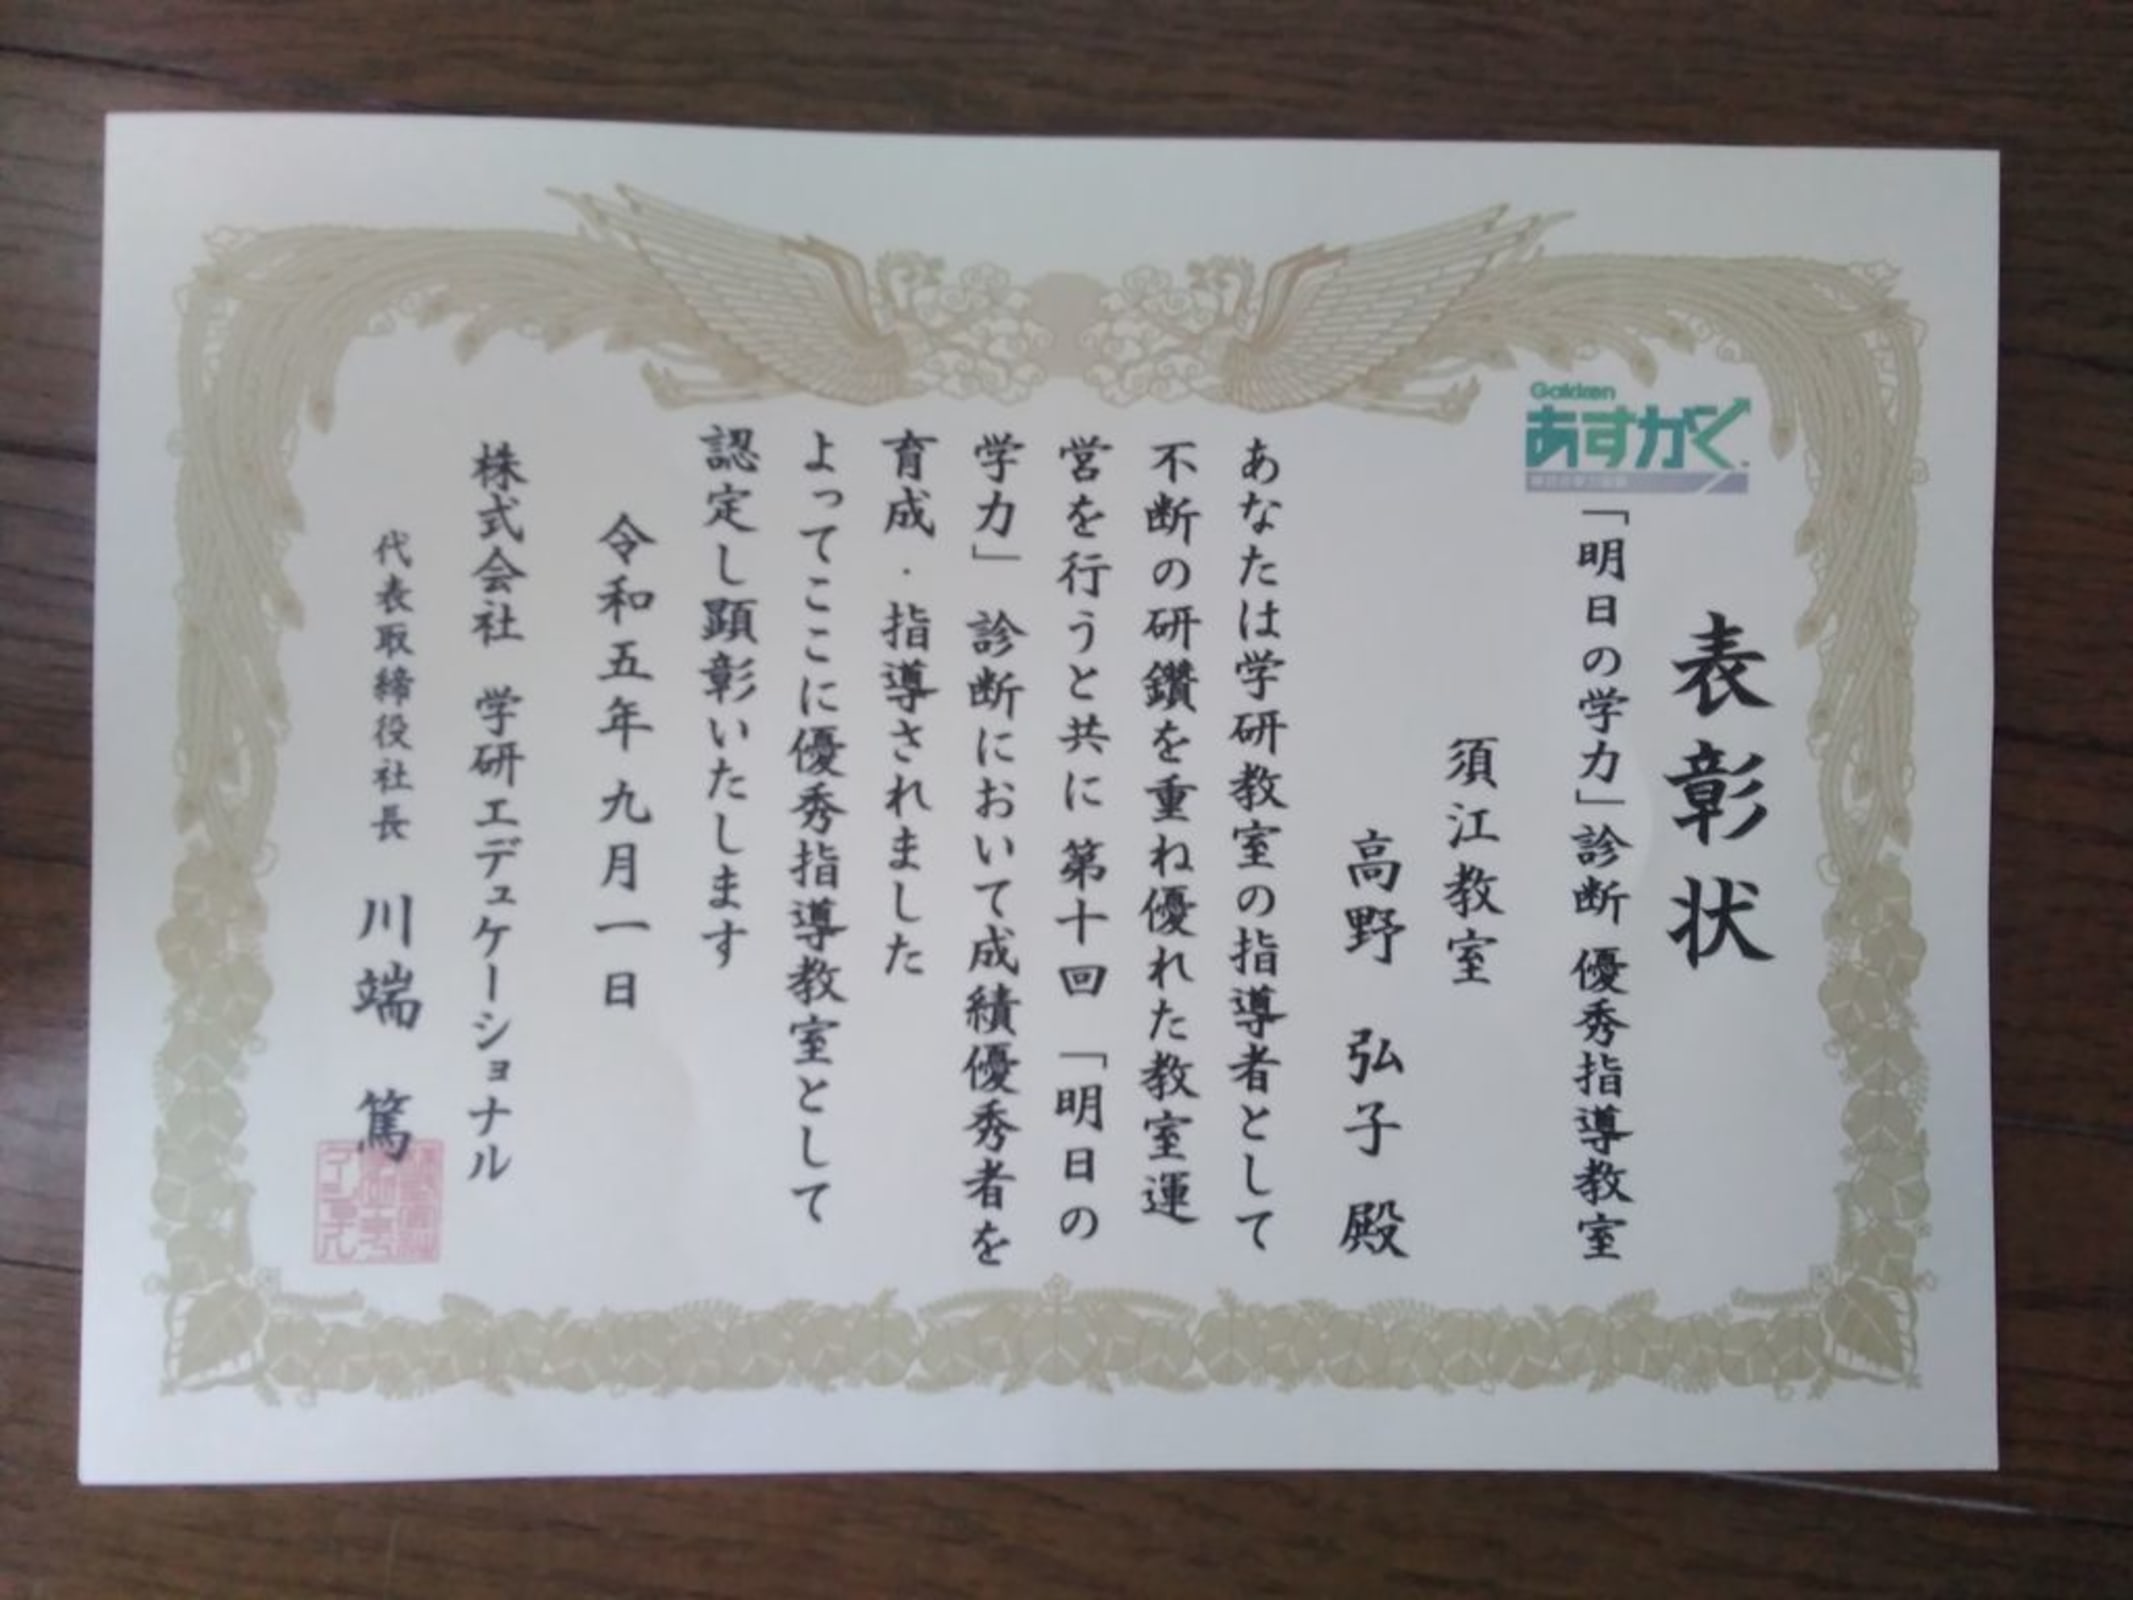 表彰状
Gakken
あすがく
「明日の学力」診断 優秀指導教室
須江教室
高野 弘子 殿
あなたは学研教室の指導者として
不断の研鑽を重ね優れた教室運
営を行うと共に 第十回 「明日の
学力」 診断において成績優秀者を
育成・指導されました
よってここに優秀指導教室として
認定し顕彰いたします
令和五年九月一日
株式会社 学研エデュケーショナル
代表取締役社長 川端 篤